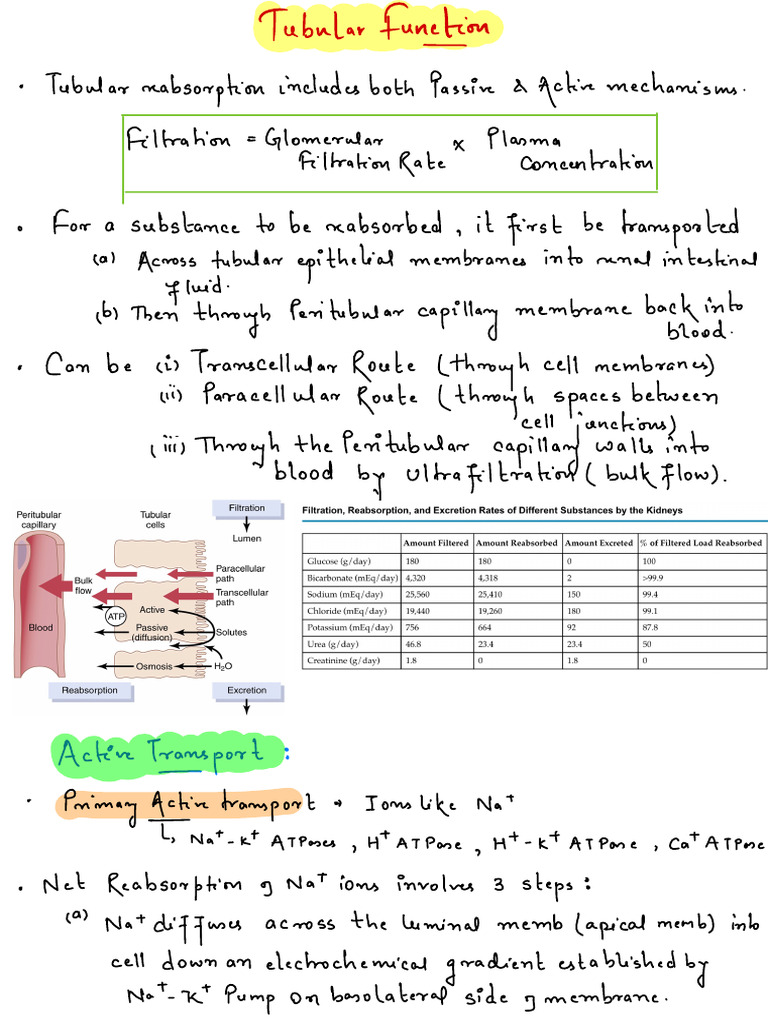 Tubular Function
• Tubular reabsorption includes both Passive & Active mechanisms.
Filtration = Glomerular Filtration Rate x Plasma Concentration
• For a substance to be reabsorbed, it first be transported
(a) Across tubular epithelial membranes into renal intestinal
fluid.
(b) Then through Peritubular capillary membrane back into
blood.
• Can be (i) Transcellular Route (through cell membranes)
(ii) Paracellular Route (through spaces between
cell junctions)
(iii) Through the Peritubular capillary walls into
blood by Ultrafiltration (bulk flow).
Peritubular capillary
Tubular cells
Filtration
Lumen
Paracellular path
Transcellular path
Bulk flow
Active
ATP
Blood
Passive (diffusion)
Solutes
Osmosis
H₂O
Reabsorption
Excretion
Filtration, Reabsorption, and Excretion Rates of Different Substances by the Kidneys
Amount Filtered Amount Reabsorbed Amount Excreted % of Filtered Load Reabsorbed
Glucose (g/day) 180 180 0 100
Bicarbonate (mEq/day) 4,320 4,318 2 >99.9
Sodium (mEq/day) 25,560 25,410 150 99.4
Chloride (mEq/day) 19,440 19,260 180 99.1
Potassium (mEq/day) 756 664 92 87.8
Urea (g/day) 46.8 23.4 23.4 50
Creatinine (g/day) 1.8 0 1.8 0
Active Transport:
• Primary Active transport → Ions like Na⁺
↳ Na⁺-K⁺ ATPases, H⁺ ATPase, H⁺-K⁺ ATPase, Ca⁺ ATPase
• Net Reabsorption of Na⁺ ions involves 3 steps:
(a) Na⁺ diffuses across the luminal memb (apical memb) into
cell down an electrochemical gradient established by
Na⁺-K⁺ Pump on basolateral side of membrane.